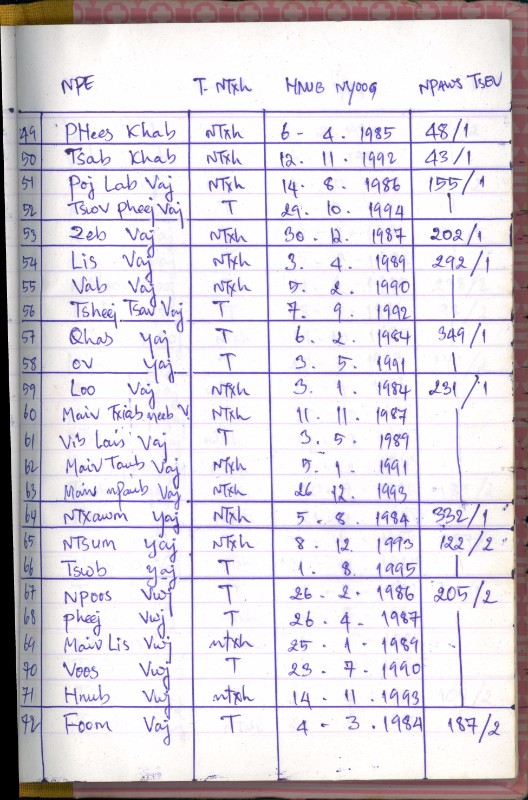 NPE T. NTxh HNUB NYOOG NPAWS TSEV
49 PHees Khab NTxh 6 - 4 . 1985 48/1
50 Tsab Khab NTxh 12 . 11 . 1992 43/1
51 Poj Lab Vaj NTxh 14 . 8 . 1986 155/1
52 Tsiov pheej Vaj T 29 . 10 . 1994 |
53 Zeb Vaj NTxh 30 . 12 . 1987 202/1
54 Lis Vaj NTxh 3 . 4 . 1989 292/1
55 Vab Vaj NTxh 5 . 2 . 1990
56 Tsheej Tsav Vaj T 7 . 9 . 1992
57 Qhas yaj T 6 . 2 . 1984 349/1
58 ov yaj T 3 . 5 . 1991 |
59 Loo Vaj NTxh 3 . 1 . 1984 231/1
60 Maiv Txiab neeb V NTxh 11 . 11 . 1987
61 Vib Lais Vaj T 3 . 5 . 1989
62 Maiv Taub Vaj NTxh 5 . 1 . 1991
63 Maiv npaub Vaj NTxh 26 12 . 1993
64 NTxawm yaj NTxh 5 . 8 . 1984 332/1
65 NTsum yaj NTxh 8 . 12 . 1993 122/2
66 Tswb yaj T 1 . 8 . 1995 |
67 NPOOS Vwj T 26 . 2 . 1986 205/2
68 pheej Vwj T 26 . 4 . 1987
69 Maiv Lis Vwj ntxh 25 . 1 . 1989
70 Voos Vwj T 23 . 7 . 1990
71 Hnub Vwj ntxh 14 . 11 . 1993
72 Foom Vaj T 4 - 3 . 1984 187/2